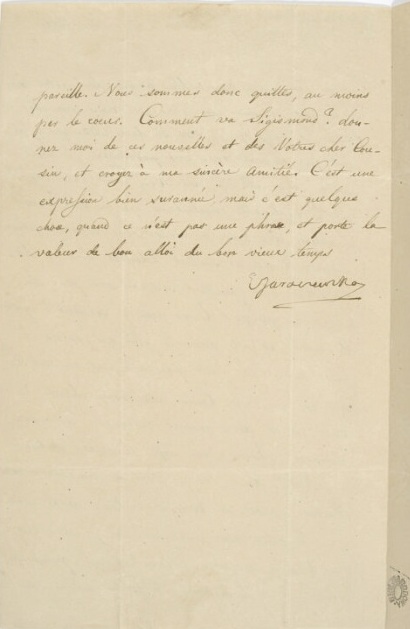 pareille. Nous sommes donc quittes, au moins
par le coeur. Comment va Sigismond? don-
nez moi de ses nouvelles et des Votres cher Cou-
sin, et croyez à ma sincère amitié. C'est une
expression bien surannée mais c'est quelque
chose, quand ce n'est pas une phrase, et porte la
valeur de bon alloi du bon vieux temps